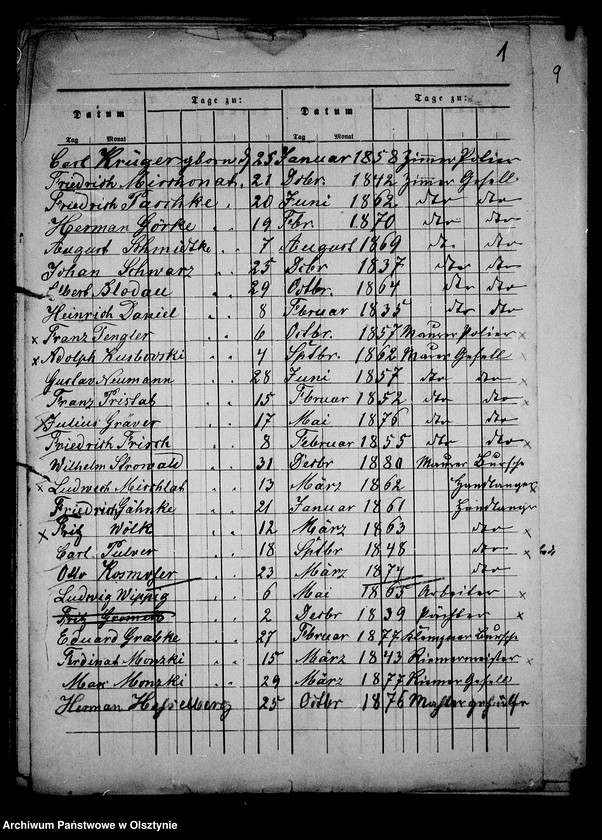 1
9
Tage zu: Tage zu:
Datum Datum
Tag Monat Tag Monat
Carl Krüger 25 Januar 1858 Zimmer Polier
Friedrich 21 Dcbr. 1842 Zimmer Gesell
Friedrich Paschke " 20 Juni 1862 dto dto
Herman Görke " " 19 Fbr. 1870 dto dto
August Schmidtke " 7 August 1869 dto dto
Johan Schwarz " " 25 Dcbr 1837 dto dto
Albert Blodau " " 29 Octbr. 1864 dto dto
Heinrich Daniel " " 8 Februar 1835 dto dto
x Franz Tengler " " 6 Octbr. 1857 Maurer Polier x
x Adolph Kusbovski " " 4 Sptbr. 1862 Maurer Gesell x
Gustav Neumann " " 28 Juni 1857 dto dto x
Franz Pristab " " 15 Februar 1852 dto dto x
x Julius Gräver " " 17 Mai 1876 dto dto
Friedrich Frisch " " 8 Februar 1855 dto dto x
Wilhelm Strowald " " 31 Decbr 1880 Maurer Bursche
x Ludwech Mischlat " " 13 März 1862 Handlanger x
Friedrich Jähnke " " 21 Januar 1861 Handlanger
x Fritz Wölk " " 12 März 1863 dto x
Carl Pulver " " 18 Sptbr 1848 dto x
Otto Kosmoser " " 23 März 1874 dto
Ludwig Wippig " " 6 Mai 1865 Arbeiter x
Fritz " " 2 Decbr 1839 Pächter x
Eduard Grabke " " 27 Februar 1877 Klempner Bursche
Ferdinat Monzki " " 15 März 1843 Riemermeister x
Max Monzki " " 29 März 1877 Riemer Gesell
Herman Hesselberg 25 Octbr 1876 Mahlergehülfe
Archiwum Państwowe w Olsztynie